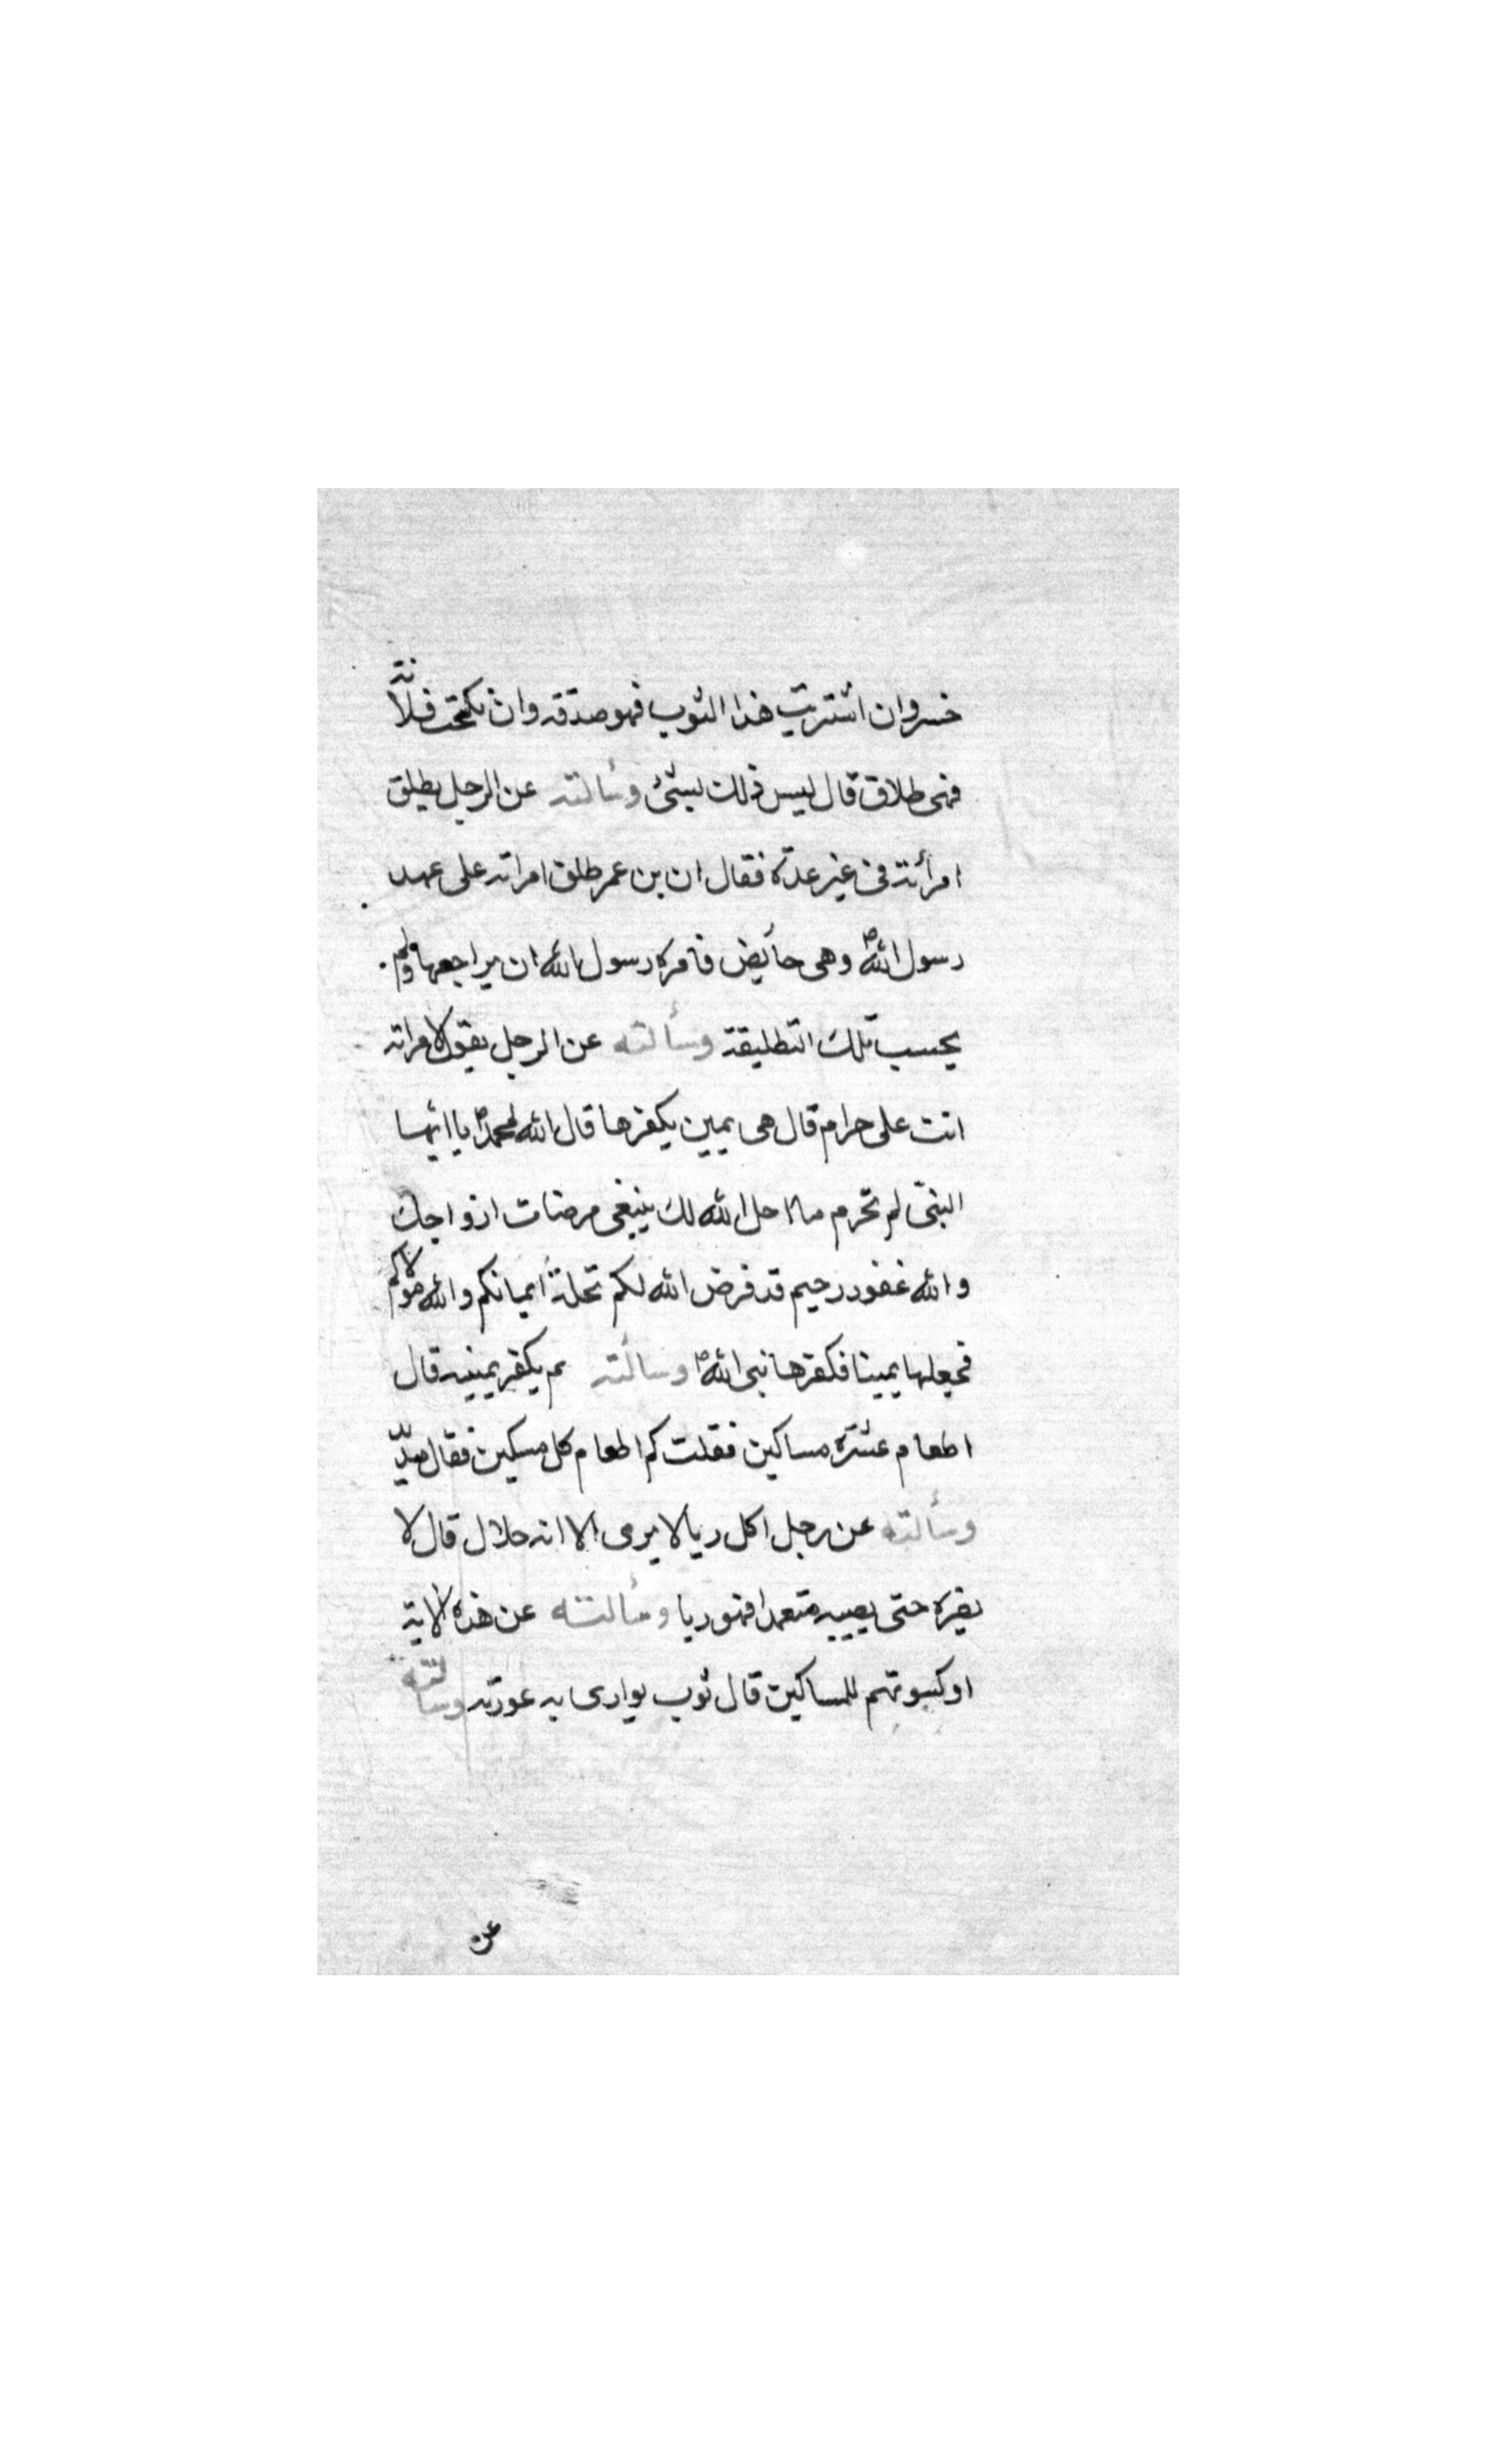 خسر وان اشتريت هذا الثوب فهو صدقه وان نكحت فلانة
فهى طلاق قال ليس ذلك بشئ وسألته عن الرجل يطلق
امرأته فى غير عدة فقال ان بن عمر طلق امراته على عهد
رسول الله ص وهى حائض فامره رسول الله ان يراجعها ولم
يحسب تلك التطليقة وسألته عن الرجل يقول لامراته
انت على حرام قال هى يمين يكفرها قال الله لمحمد ص يا ايّها
النبىّ لم تحرم ما احل الله لك يبتغى مرضات ازواجك
والله غفور رحيم قد فرض الله لكم تحلة أيمانكم والله مولاكم
فجعلها يمينا فكفرها نبى الله ص وسألته بم يكفر يمينه قال
اطعام عشرة مساكين فقلت كم اطعام كل مسكين فقال مدّ مدّ
وسألته عن رجل اكل ربا لا يرى الا انه حلال قال لا
يضره حتى يصيبه متعمدا فهو ربا وسألته عن هذه الاية
او كسوتهم للمساكين قال ثوب يوارى به عورته وسألته
عن